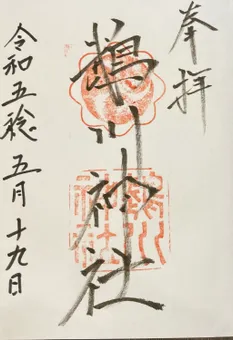 奉拝
鵜川神社
鵜川神社
令和五稔五月十九日